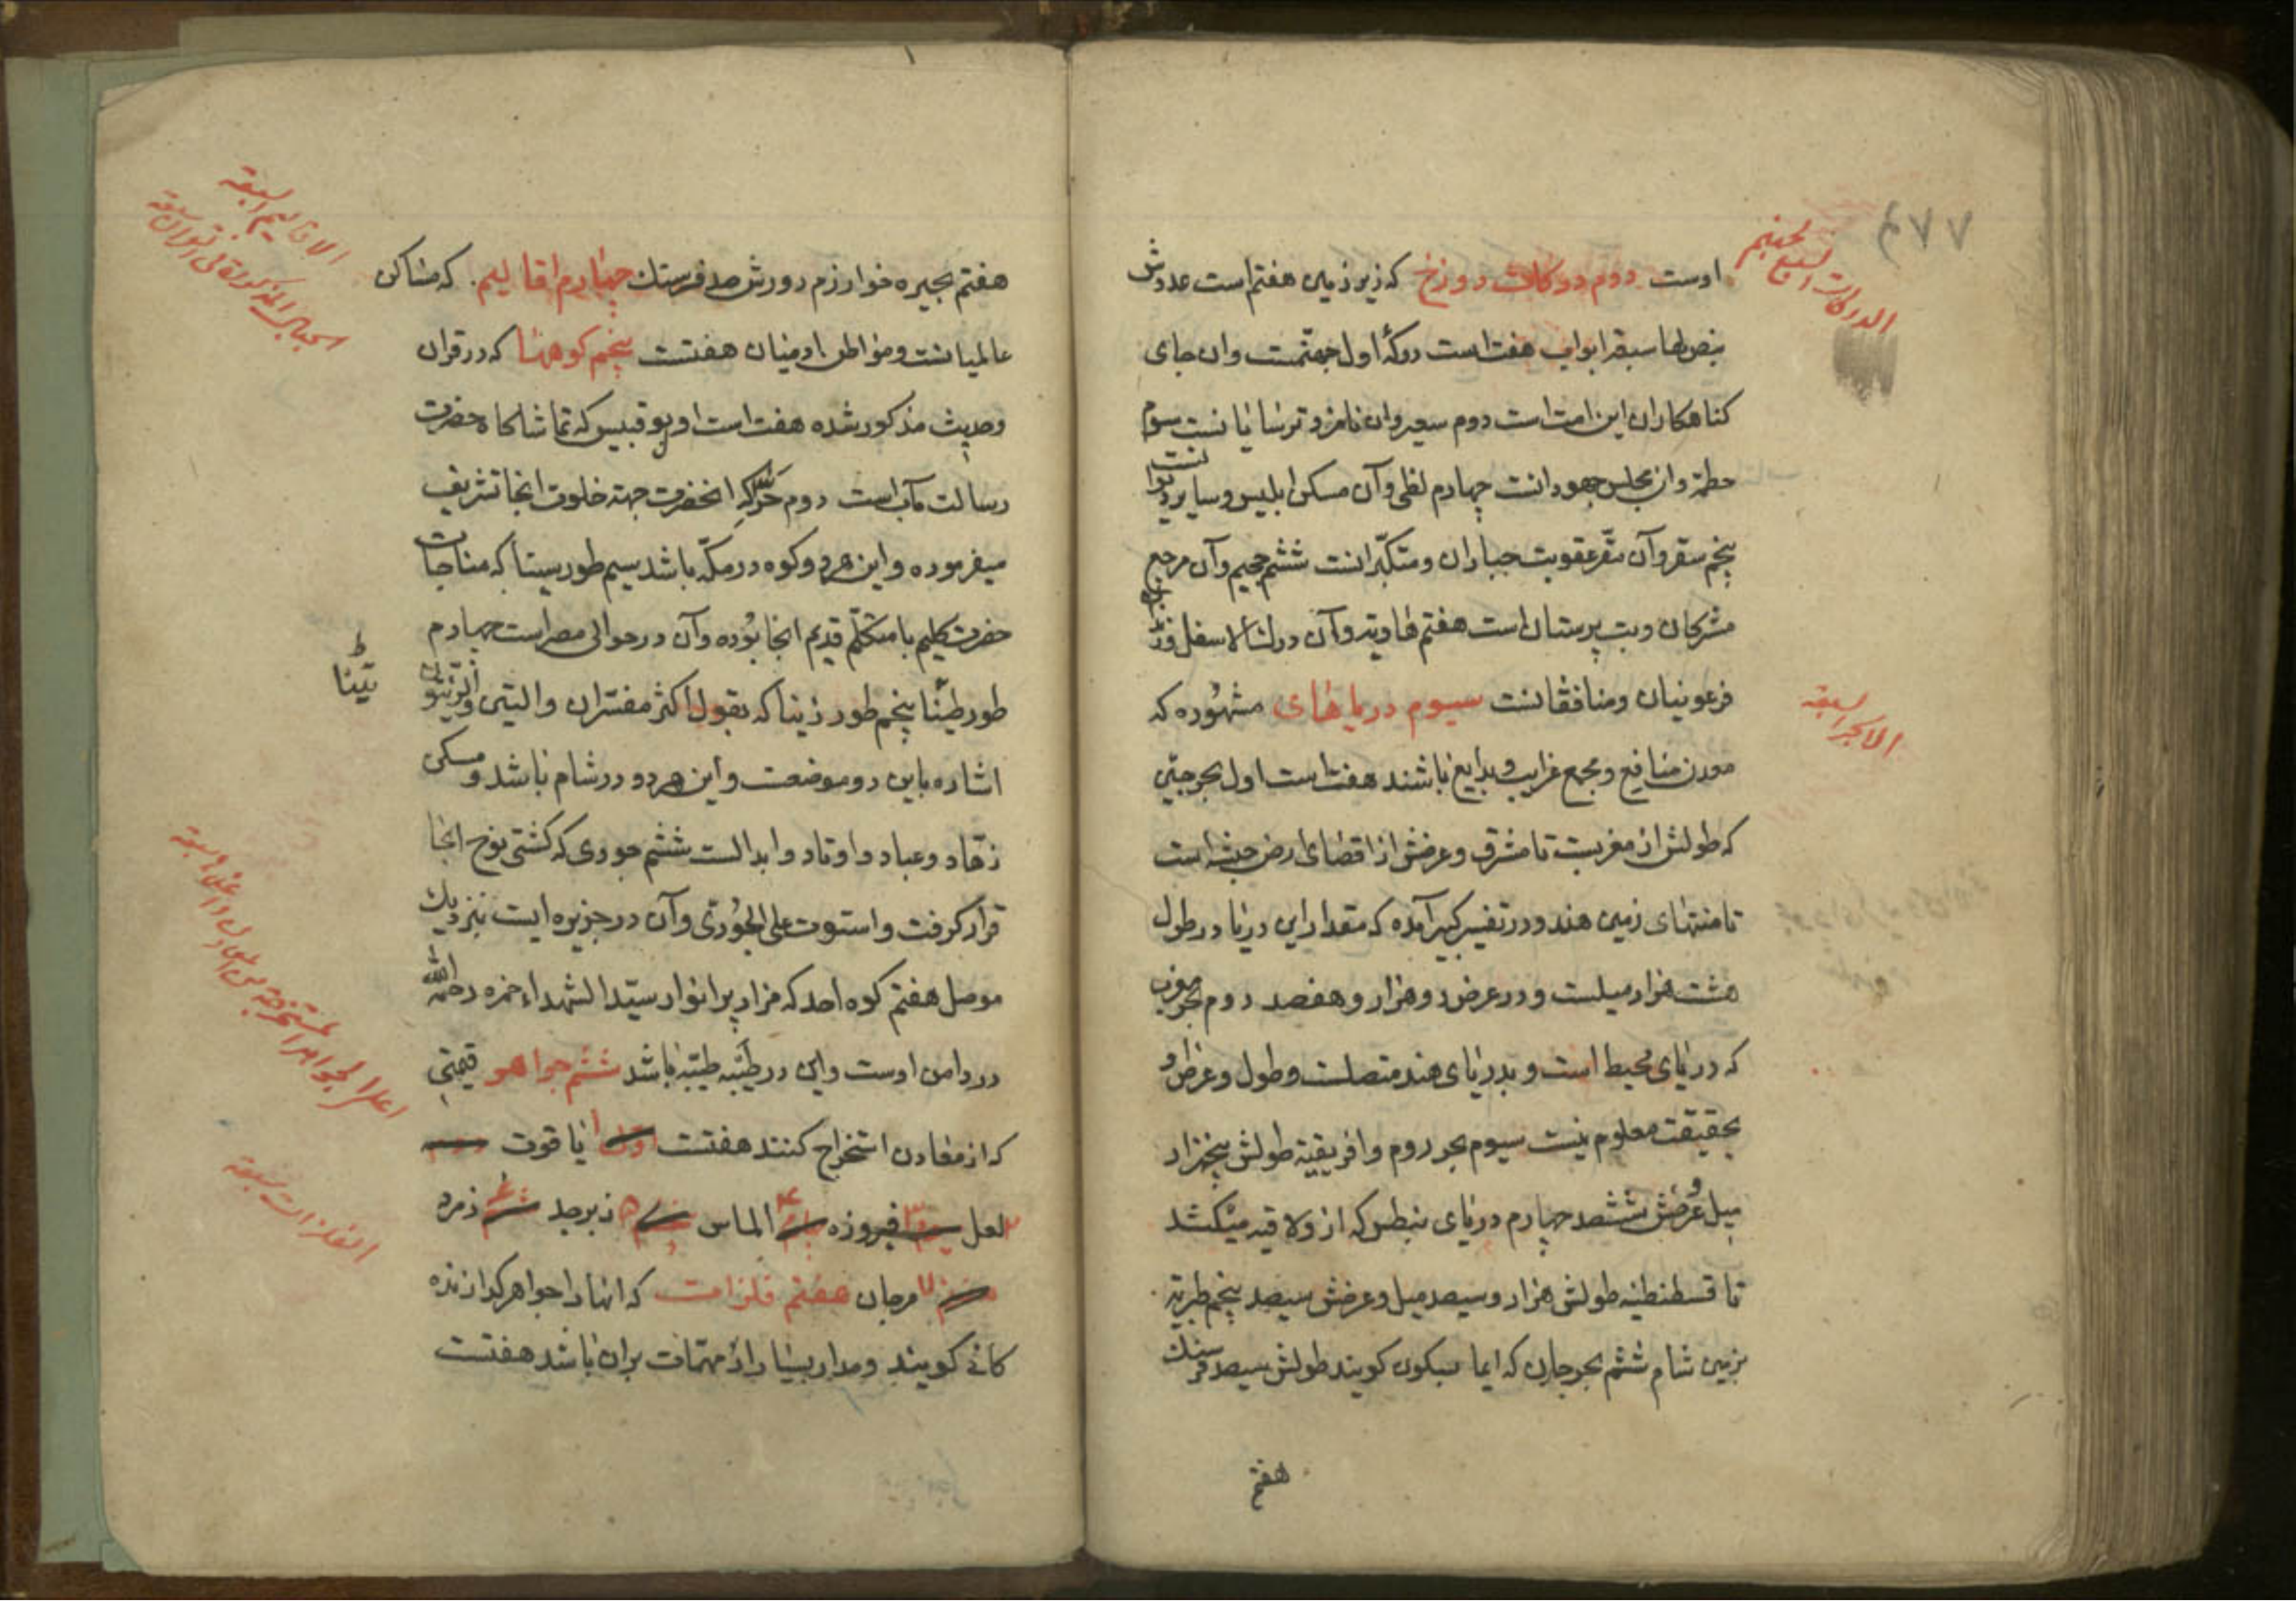 اوست دوم درکات دوزخ که زیر زمین هفتم است عددش
بنص لها سبعة ابواب هفت است درکهٔ اول جهنمست وان جای
کناهکاران این امت است دوم سعیر وان نامزد ترسایانست سوم
حطمة وان مجلس جهودانست چهارم لظی وآن مسکن ابلیس وسایر دیوانست
پنجم سقر وآن مقر عقوبت جباران ومتکبرانست ششم جحیم وآن مرجع
مشرکان وبت پرستان است هفتم هاویه وآن درک الاسفل
فرعونیان ومنافقانست سیوم دریاهای مشهوره که
معدن منافع ومجمع غرایب وبدایع باشند هفت است اول بحر
که طولش از مغربست تا مشرق وعرضش از اقصای ارض حبشه است
تا منتهای زمین هند ودر تفسیر کبیر آمده که مقدار این دریا در طول
هشت هزار میلست ودر عرض دو هزار وهفصد دوم بحر مغرب
که دریای محیط است وبدریای هند متصلست وطول وعرض او
بحقیقت معلوم نیست سیوم بحر روم وافریقیه طولش پنجهزار
میل وعرضش ششصد چهارم دریای بنطس که از ولاقیه میکشد
تا قسطنطنیه طولش هزار وسیصد میل وعرضش سیصد پنجم طبریه
بزمین شام ششم بحر جرجان که کویند طولش سیصد فرسنك
هفتم
الدرکات السبع لجهنم
الابحر السبعه
۷۷
هفتم بحیره خوارزم دورش صد فرسنك چهارم اقالیم که مساکن
عالمیانست ومواطن ادمیان هفتست پنجم کوهها که در قران
وحدیث مذکور شده هفت است اول بوقبیس که تماشاکاه حضرت
رسالت مآب است دوم که انحضرت جهة خلوت انجا تشریف
میفرموده واین هر دو کوه در مکّه باشد سیم طور سینا که مناجات
حضرت کلیم با متکلّم قدیم انجا بوده وآن در حوالی مصر است چهارم
طور پنجم طور زیتا که بقول اکثر مفسّران والتین والزیتون
اشاره باین دو موضعست واین هر دو در شام باشد ومسکن
زهّاد وعباد واوتاد وابدالست ششم جودی که کشتی نوح انجا
قرار کرفت واستوت علی الجودی وآن در جزیره ایست بنزدیك
موصل هفتم کوه احد که مزار پر انوار سیّد الشهداء حمزه رحمه الله
در دامن اوست واین در طیبه طیّبه باشد ششم جواهر قیمتی
که از معادن استخراج کنند هفتست اول یاقوت دوم
لعل سیم فیروزه چهارم الماس پنجم زبرجد ششم زمرد
هفتم مرجان هفتم فلزات که انها را جواهر کدازنده
کانی کویند ومدار بسیار از مهمّات بران باشد هفتست
الاقالیم السبعة
الجبال المذکورة فی القران سبعة
تینا
الفلزات سبعة